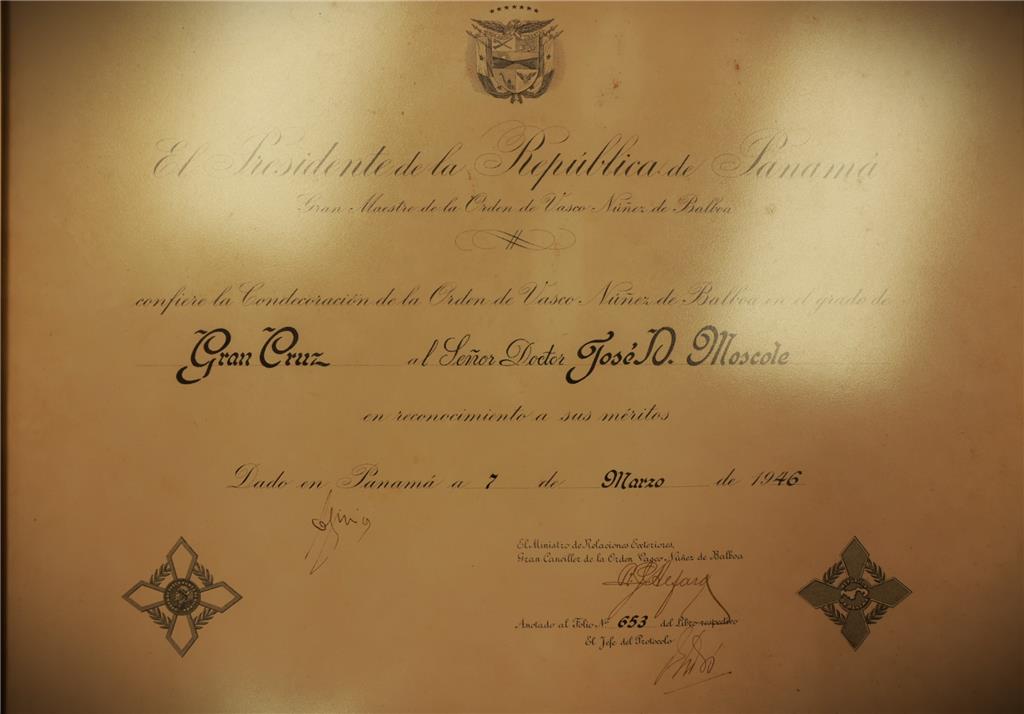 El Presidente de la República de Panamá
Gran Maestre de la Orden de Vasco Núñez de Balboa
confiere la Condecoración de la Orden de Vasco Núñez de Balboa en el grado de
Gran Cruz al Señor Doctor José D. Moscole
en reconocimiento a sus méritos
Dado en Panamá a 7 de Marzo de 1946
El Ministro de Relaciones Exteriores,
Gran Canciller de la Orden Vasco Núñez de Balboa
Anotado al Folio Nº 653 del Libro respectivo
El Jefe del Protocolo